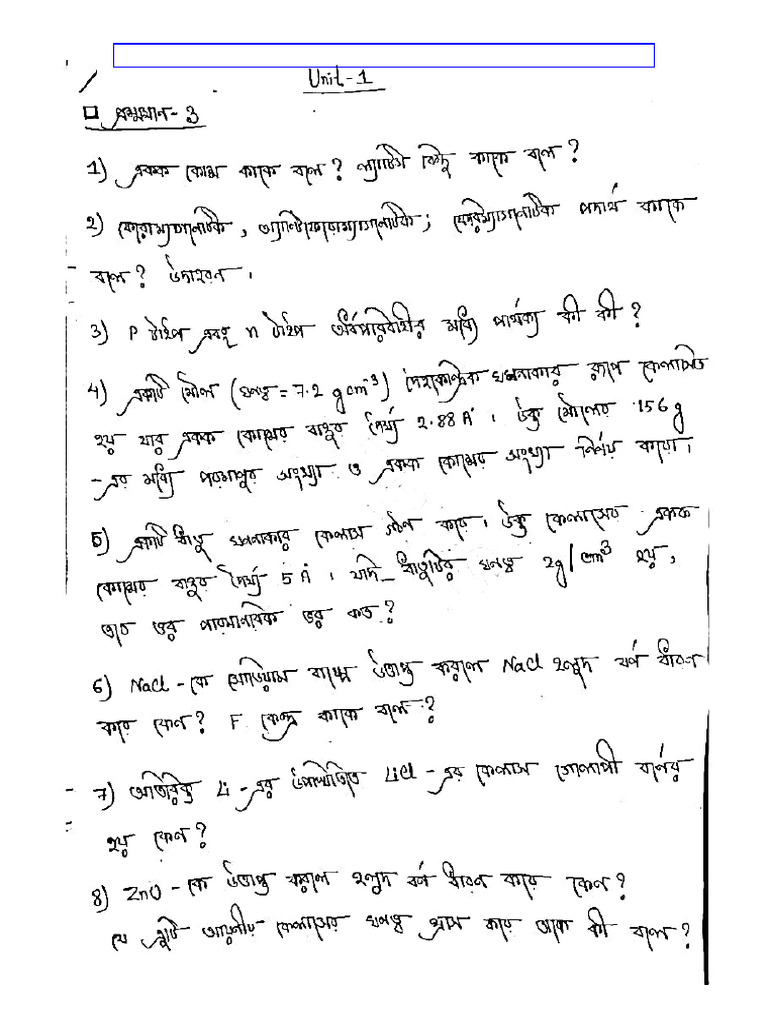 Unit-1
প্রশ্নমান-3
1) একক কোষ কাকে বলে? ল্যাটিস বিন্দু কাকে বলে?
2) ফেরোম্যাগনেটিক, অ্যান্টিফেরোম্যাগনেটিক; ফেরিম্যাগনেটিক পদার্থ কাকে
বলে? উদাহরন।
3) P টাইপ এবং n টাইপ অর্ধপরিবাহীর মধ্যে পার্থক্য কী কী?
4) একটি মৌল (ঘনত্ব = 7.2 g cm⁻³) দেহকেন্দ্রিক ঘনকাকার রূপে কেলাসিত
হয় যার একক কোষের বাহুর দৈর্ঘ্য 2.88 A°। উক্ত মৌলের 156 g
-এর মধ্যে পরমাণুর সংখ্যা ও একক কোষের সংখ্যা নির্ণয় করো।
5) একটি ধাতু ঘনকাকার কেলাস গঠন করে। উক্ত কেলাসের একক
কোষের বাহুর দৈর্ঘ্য 5 A°। যদি ধাতুটির ঘনত্ব 2g/cm³ হয়,
তবে ওর পারমানবিক ভর কত?
6) NaCl-কে সোডিয়াম বাষ্পে উত্তপ্ত করলে NaCl হলুদ বর্ণ ধারন
করে কেন? F কেন্দ্র কাকে বলে?
7) অতিরিক্ত Li-এর উপস্থিতিতে LiCl-এর কেলাস গোলাপী বর্ণের
হয় কেন?
8) ZnO-কে উত্তপ্ত করলে হলুদ বর্ণ ধারন করে কেন?
যে ত্রুটি আয়নীয় কেলাসের ঘনত্ব হ্রাস করে তাকে কী বলে?